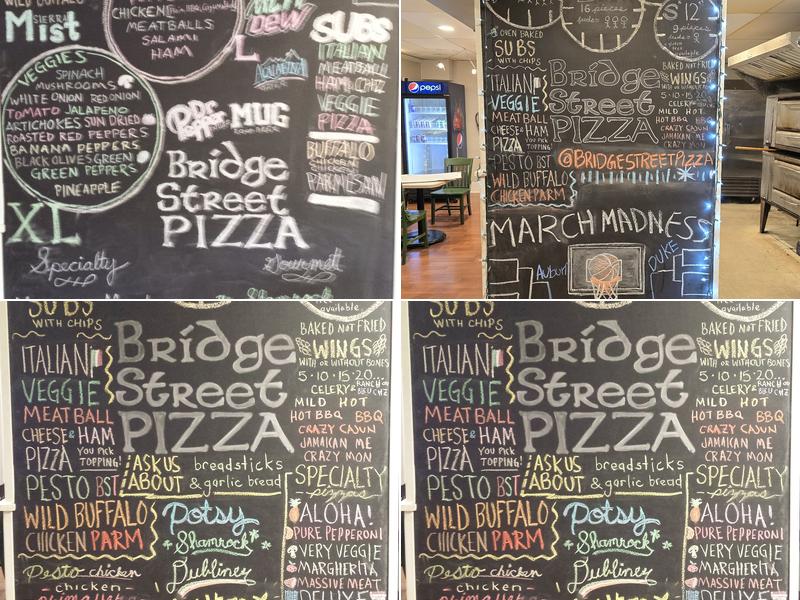 SIERRA
Mist
CHICKEN
MEATBALLS
SALAMI
HAM
DEW
L
AQUAFINA
VEGGIES
SPINACH
MUSHROOMS
WHITE ONION RED ONION
TOMATO JALAPENO
ARTICHOKES SUN DRIED
ROASTED RED PEPPERS
BANANA PEPPERS
BLACK OLIVES GREEN
GREEN PEPPERS
PINEAPPLE
XL
Specialty
SUBS
ITALIAN
MEATBALL
HAM CHZ
VEGGIE
PIZZA
BUFFALO
CHICKEN
CHICKEN
PARMESAN
Dr Pepper
MUG
Bridge
Street
PIZZA
Gourmett
16 pieces
12"
9 pieces
OVEN BAKED
SUBS
WITH CHIPS
ITALIAN
VEGGIE
MEATBALL
CHEESE & HAM
PIZZA YOU PICK TOPPING!
PESTO BST
WILD BUFFALO
CHICKEN PARM
Bridge
Street
PIZZA
@BRIDGESTREETPIZZA
BAKED NOT FRIED
WINGS
WITH OR WITHOUT BONES
5·10·15·20...
CELERY &
MILD HOT
HOT BBQ BBQ
CRAZY CAJUN
JAMAICAN ME
CRAZY MON
MARCH MADNESS
Auburn
DUKE
pepsi
SUBS
WITH CHIPS
ITALIAN
VEGGIE
MEATBALL
CHEESE & HAM
PIZZA YOU PICK TOPPING!
PESTO BST
WILD BUFFALO
CHICKEN PARM
Pesto chicken
chicken
Bridge
Street
PIZZA
ASK US
ABOUT
breadsticks
& garlic bread
Potsy
Shamrock
Dubliner
available
BAKED NOT FRIED
WINGS
WITH OR WITHOUT BONES
5·10·15·20...
CELERY & RANCH OR BLEU CHZ
MILD HOT
HOT BBQ BBQ
CRAZY CAJUN
JAMAICAN ME
CRAZY MON
SPECIALTY
pizzas
ALOHA!
PURE PEPPERONI
VERY VEGGIE
MARGHERITA
MASSIVE MEAT
DELUXE
SUBS
WITH CHIPS
ITALIAN
VEGGIE
MEATBALL
CHEESE & HAM
PIZZA YOU PICK TOPPING!
PESTO BST
WILD BUFFALO
CHICKEN PARM
Pesto chicken
chicken
Bridge
Street
PIZZA
ASK US
ABOUT
breadsticks
& garlic bread
Potsy
Shamrock
Dubliner
available
BAKED NOT FRIED
WINGS
WITH OR WITHOUT BONES
5·10·15·20...
CELERY & RANCH OR BLEU CHZ
MILD HOT
HOT BBQ BBQ
CRAZY CAJUN
JAMAICAN ME
CRAZY MON
SPECIALTY
pizzas
ALOHA!
PURE PEPPERONI
VERY VEGGIE
MARGHERITA
MASSIVE MEAT
DELUXE